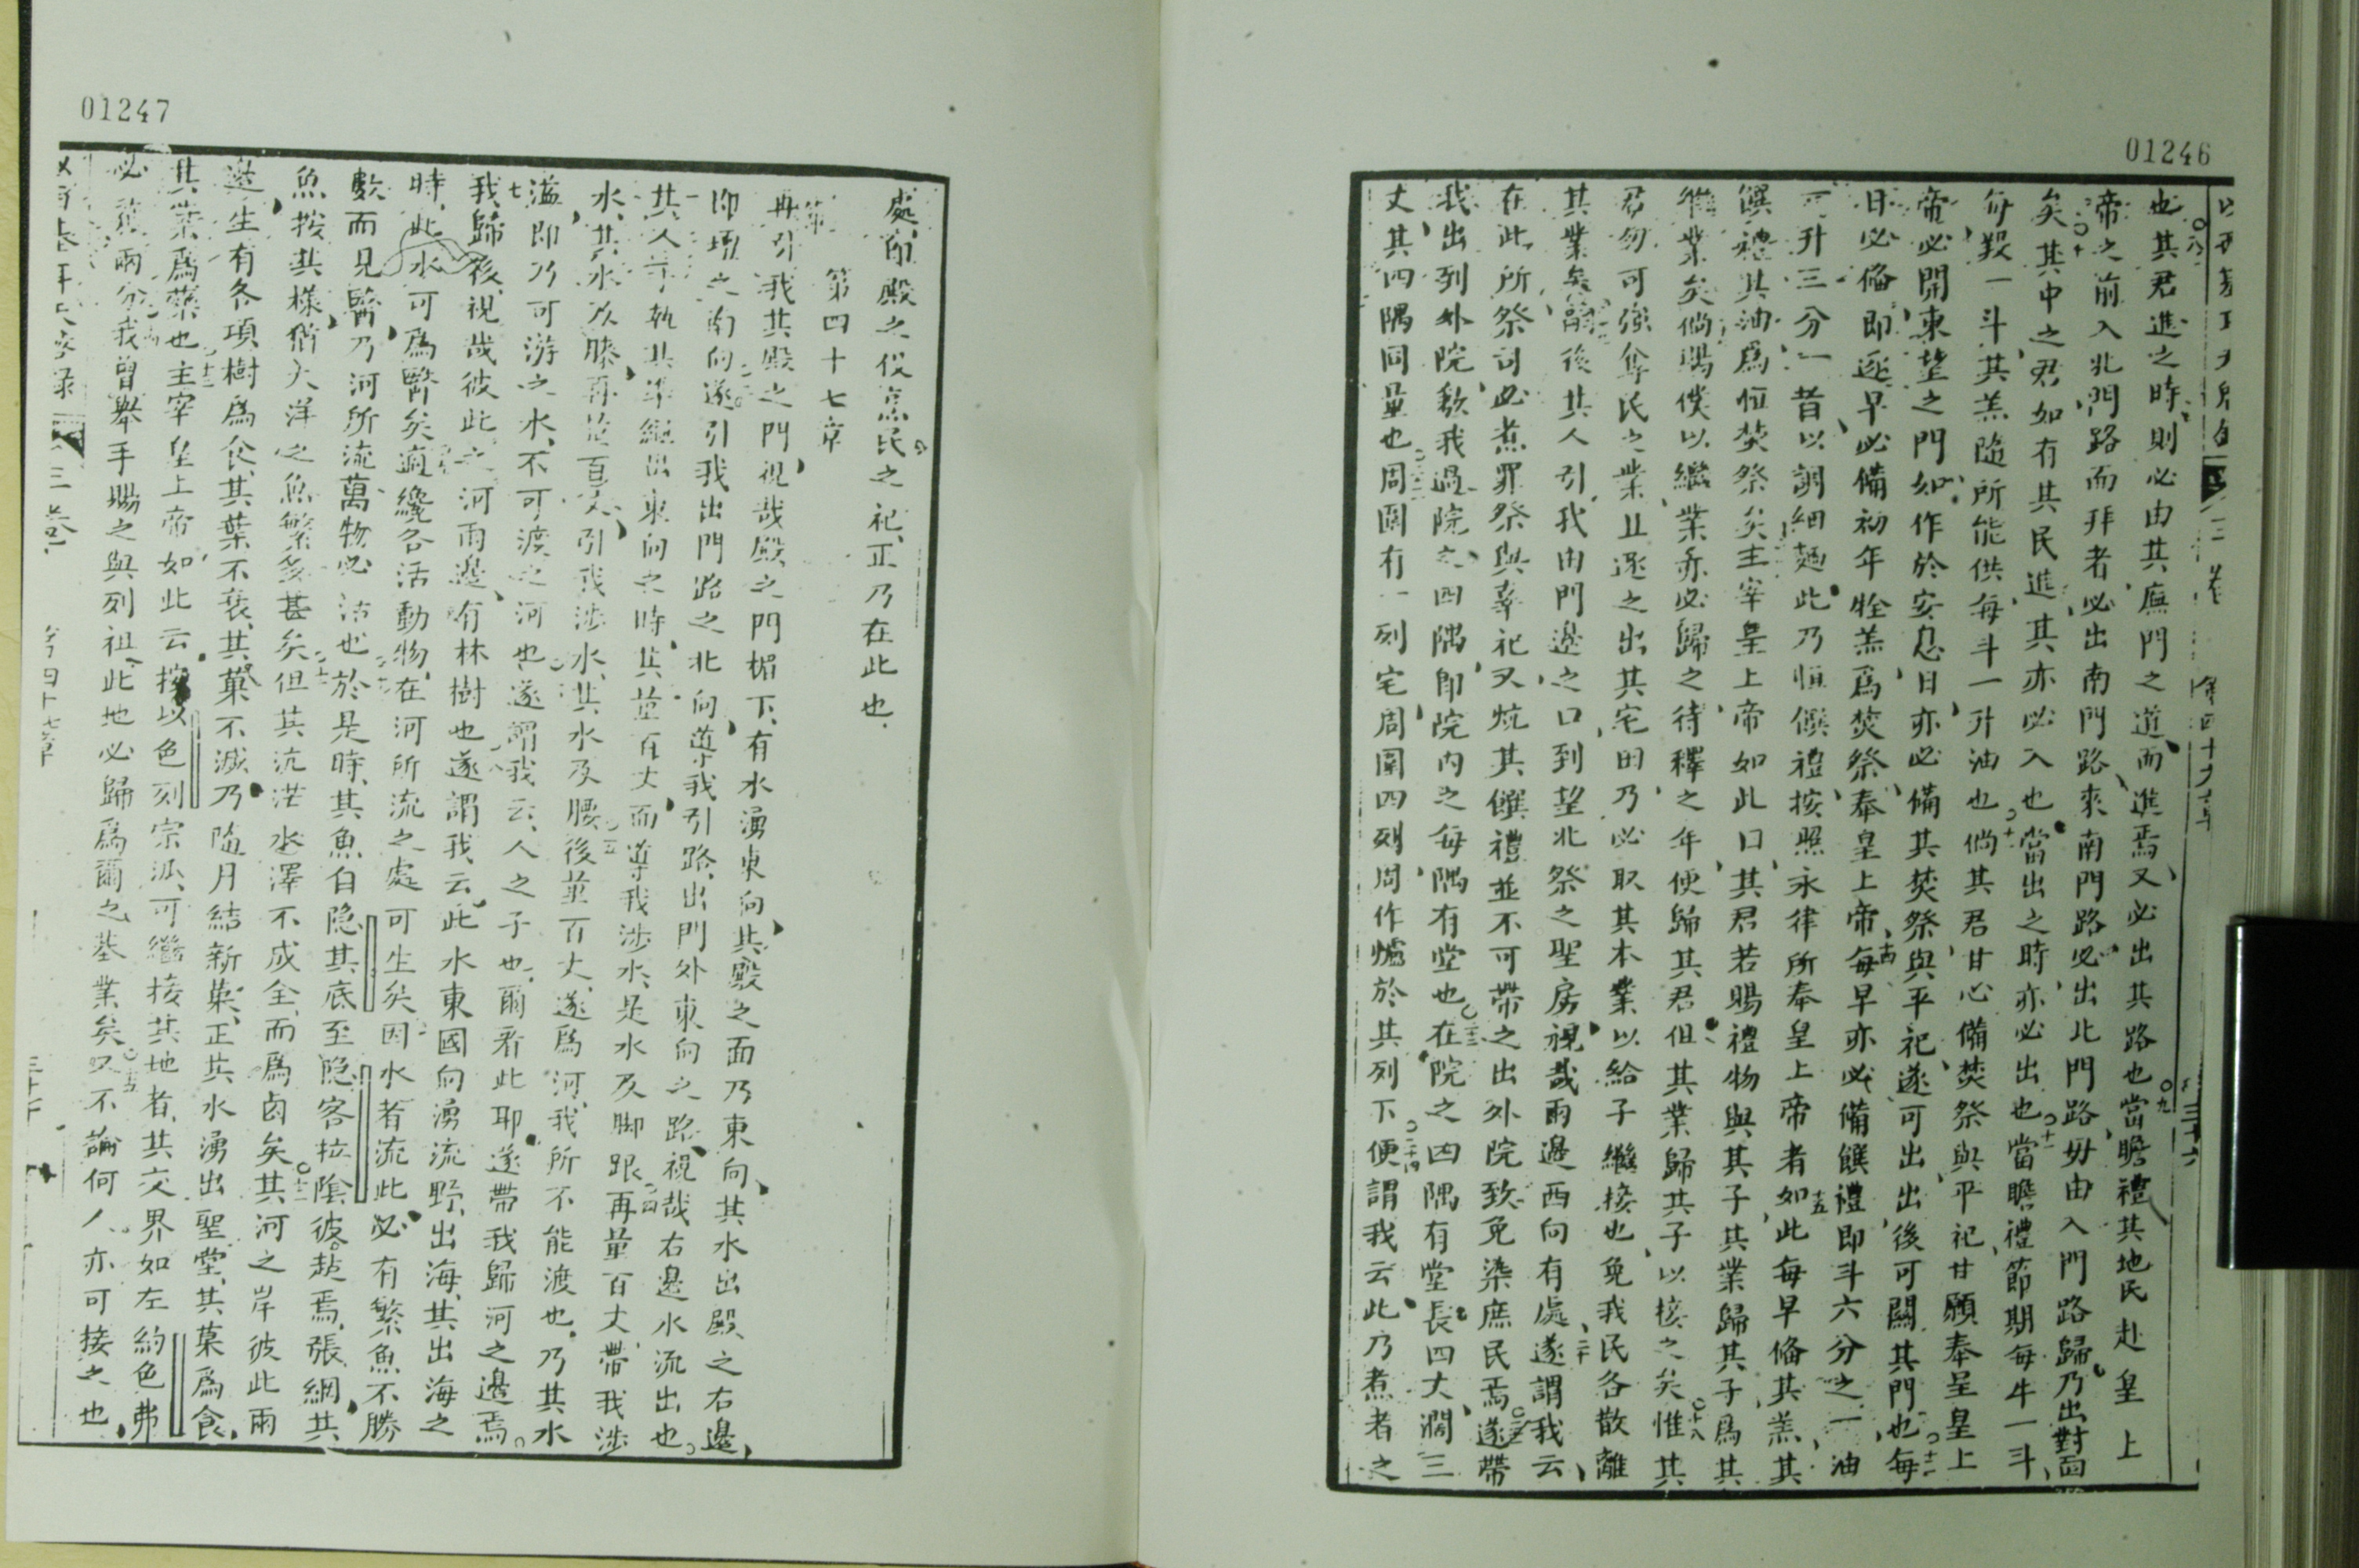 01246
也其君進之時則必由其廡門之道而進焉又必出其路也當瞻禮其地民赴皇上
帝之前入北門路而拜者必出南門路來南門路必出北門路毋由入門路歸乃出對面
矣其中之君如有其民進其亦必入也當出之時亦必出也當瞻禮節期每牛一斗
每羖一斗其羔隨所能供每斗一升油也倘其君甘心備焚祭與平祀甘願奉皇上
帝必開東望之門如作於安息日亦必備其焚祭與平祀遂可出出後可關其門也每
日必俻即逐早必備初年牷羔爲焚祭奉皇上帝每早亦必備饌禮即斗六分之一油
升三分一昔以調細麵此乃恒饌禮按照永律所奉皇上帝者如此每早俻其羔其
饌禮其油爲恒焚祭矣主宰皇上帝如此曰其君若賜禮物與其子其業歸其子爲其
繼業矣倘賜僕以繼業亦必歸之待釋之年便歸其君但其業歸其子以接之矣惟其
君勿可強奪民之業且逐之出其宅田乃必取其本業以給子繼接也免我民各散離
其業矣嗣後其人引我由門邊之口到望北祭之聖房視哉兩邊西向有處遂謂我云
在此所祭司必煮罪祭與辜祀又炕其饌禮並不可帶之出外院致免染庶民焉遂帶
我出列外院敎我過院之四隅即院內之每隅有堂也在院之四隅有堂長四丈濶三
丈其四隅同量也周圍有一列宅周圍四列周作爐於其列下便謂我云此乃煮者之
01247
處卽殿之役烹民之祀正乃在此也
第四十七章
再引我其殿之門視哉殿之門楣下有水湧東向其殿之面乃東向其水出殿之右邊
即壇之南向遂引我出門路之北向導我引路出門外東向之路視哉右邊水流出也
其人手執其準繩出東向之時其量百丈而導我涉水是水及脚跟再量百丈帶我涉
水其水及膝再量百丈引我涉水其水及腰後量百丈遂爲河我所不能渡也乃其水
溢即乃可游之水不可渡之河也遂謂我云人之子也爾看此耶遂帶我歸河之邊焉
我歸後視哉彼此之河兩邊有林樹也遂謂我云此水東國向湧流野出海其出海之
時此水可爲醫矣適纔各活動物在河所流之處可生矣因水者流此必有繁魚不勝
數而見醫乃河所流萬物必活也於是時其魚自隐其底至隐客拉陰彼站焉張網其
魚按其樣猶大洋之魚繁多甚矣但其沆茫水澤不成全而爲卤矣其河之岸彼此兩
邊生有各項樹爲食其葉不衰其菓不滅乃隨月結新菓正其水湧出聖堂其菓爲食
其葉爲藥也主宰皇上帝如此云按以色列宗派可繼接其地者其交界如左約色弗
必兩分我曾舉手賜之與列祖此地必歸爲爾之基業矣又不論何人亦可接之也
三卷